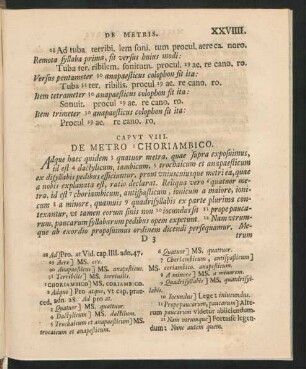 DE METRIS. XXVIIII.
18 Ad tuba terribi, lem soni, tum procul, aere ca, noro.
Remota syllaba prima, fit versus huius modi:
Tuba ter, ribilem, sonitum, procul 19 ae, re cano, ro.
Versus pentameter 10 anapaesticus colophon fit ita:
Tuba 11 ter, ribilis, procul 19 ae, re cano, ro.
Item tetrameter 10 anapaesticus colophon fit ita:
Sonuit, procul 19 ae, re cano, ro.
Item trimeter 10 anapaesticus colophon fit ita:
Procul 19 ae, re cano, ro.
CAPVT VIII.
DE METRO CHORIAMBICO.
Adque haec quidem quatuor metra, quae supra exposuimus,
id est dactylicum, iambicum, trochaicum et anapaesticum
ex disyllabis pedibus efficiuntur, prout uniuscuiusque metri ea, quae
a nobis explanata est, ratio declarat. Reliqua vero quatuor me-
tra, id est choriambicum, antispasticum, ionicum a maiore, ioni-
cum a minore, quamvis quadrisyllabis ex parte plurima con-
texantur, ut tamen eorum finis non iocundus fit propepauca-
rum, paucarum syllabarum pedibus opus expetunt. Nam utrum-
que ab exordio propositimus ordinem dicendi persequamur.
D 3 Metrum
18 Ad] Pro, at Vid. cap. IIII. adn. 47.
19 Aere] MS. ere.
10 Anapaesticum] MS. anapesticum.
11 Terribilis] MS. terriuilis.
CHORIAMBICO] MS. CORIAMBICO.
2 Adque] Pro atque, vt cap. praeced. adn. 28. Ad pro at.
3 Quatuor] MS. quattuor.
4 Dactylicum] MS. dactilicum.
5 Trochaicum et anapaesticum] MS. trochaicum et anapesticum.
6 Quatuor] MS. quattuor.
7 Choriambicum, antispasticum] MS. coriambicum.
8 A minore] MS. a minorem.
9 Quadrisyllabis] MS. quadrisyllabis.
10 Iocundus] Leget iniucundus.
11 Propepaucarum, paucarum] Alterum paucarum videtur abiiciendum.
12 Nam utrumque] Fortasse legendum: Nunc autem quem.